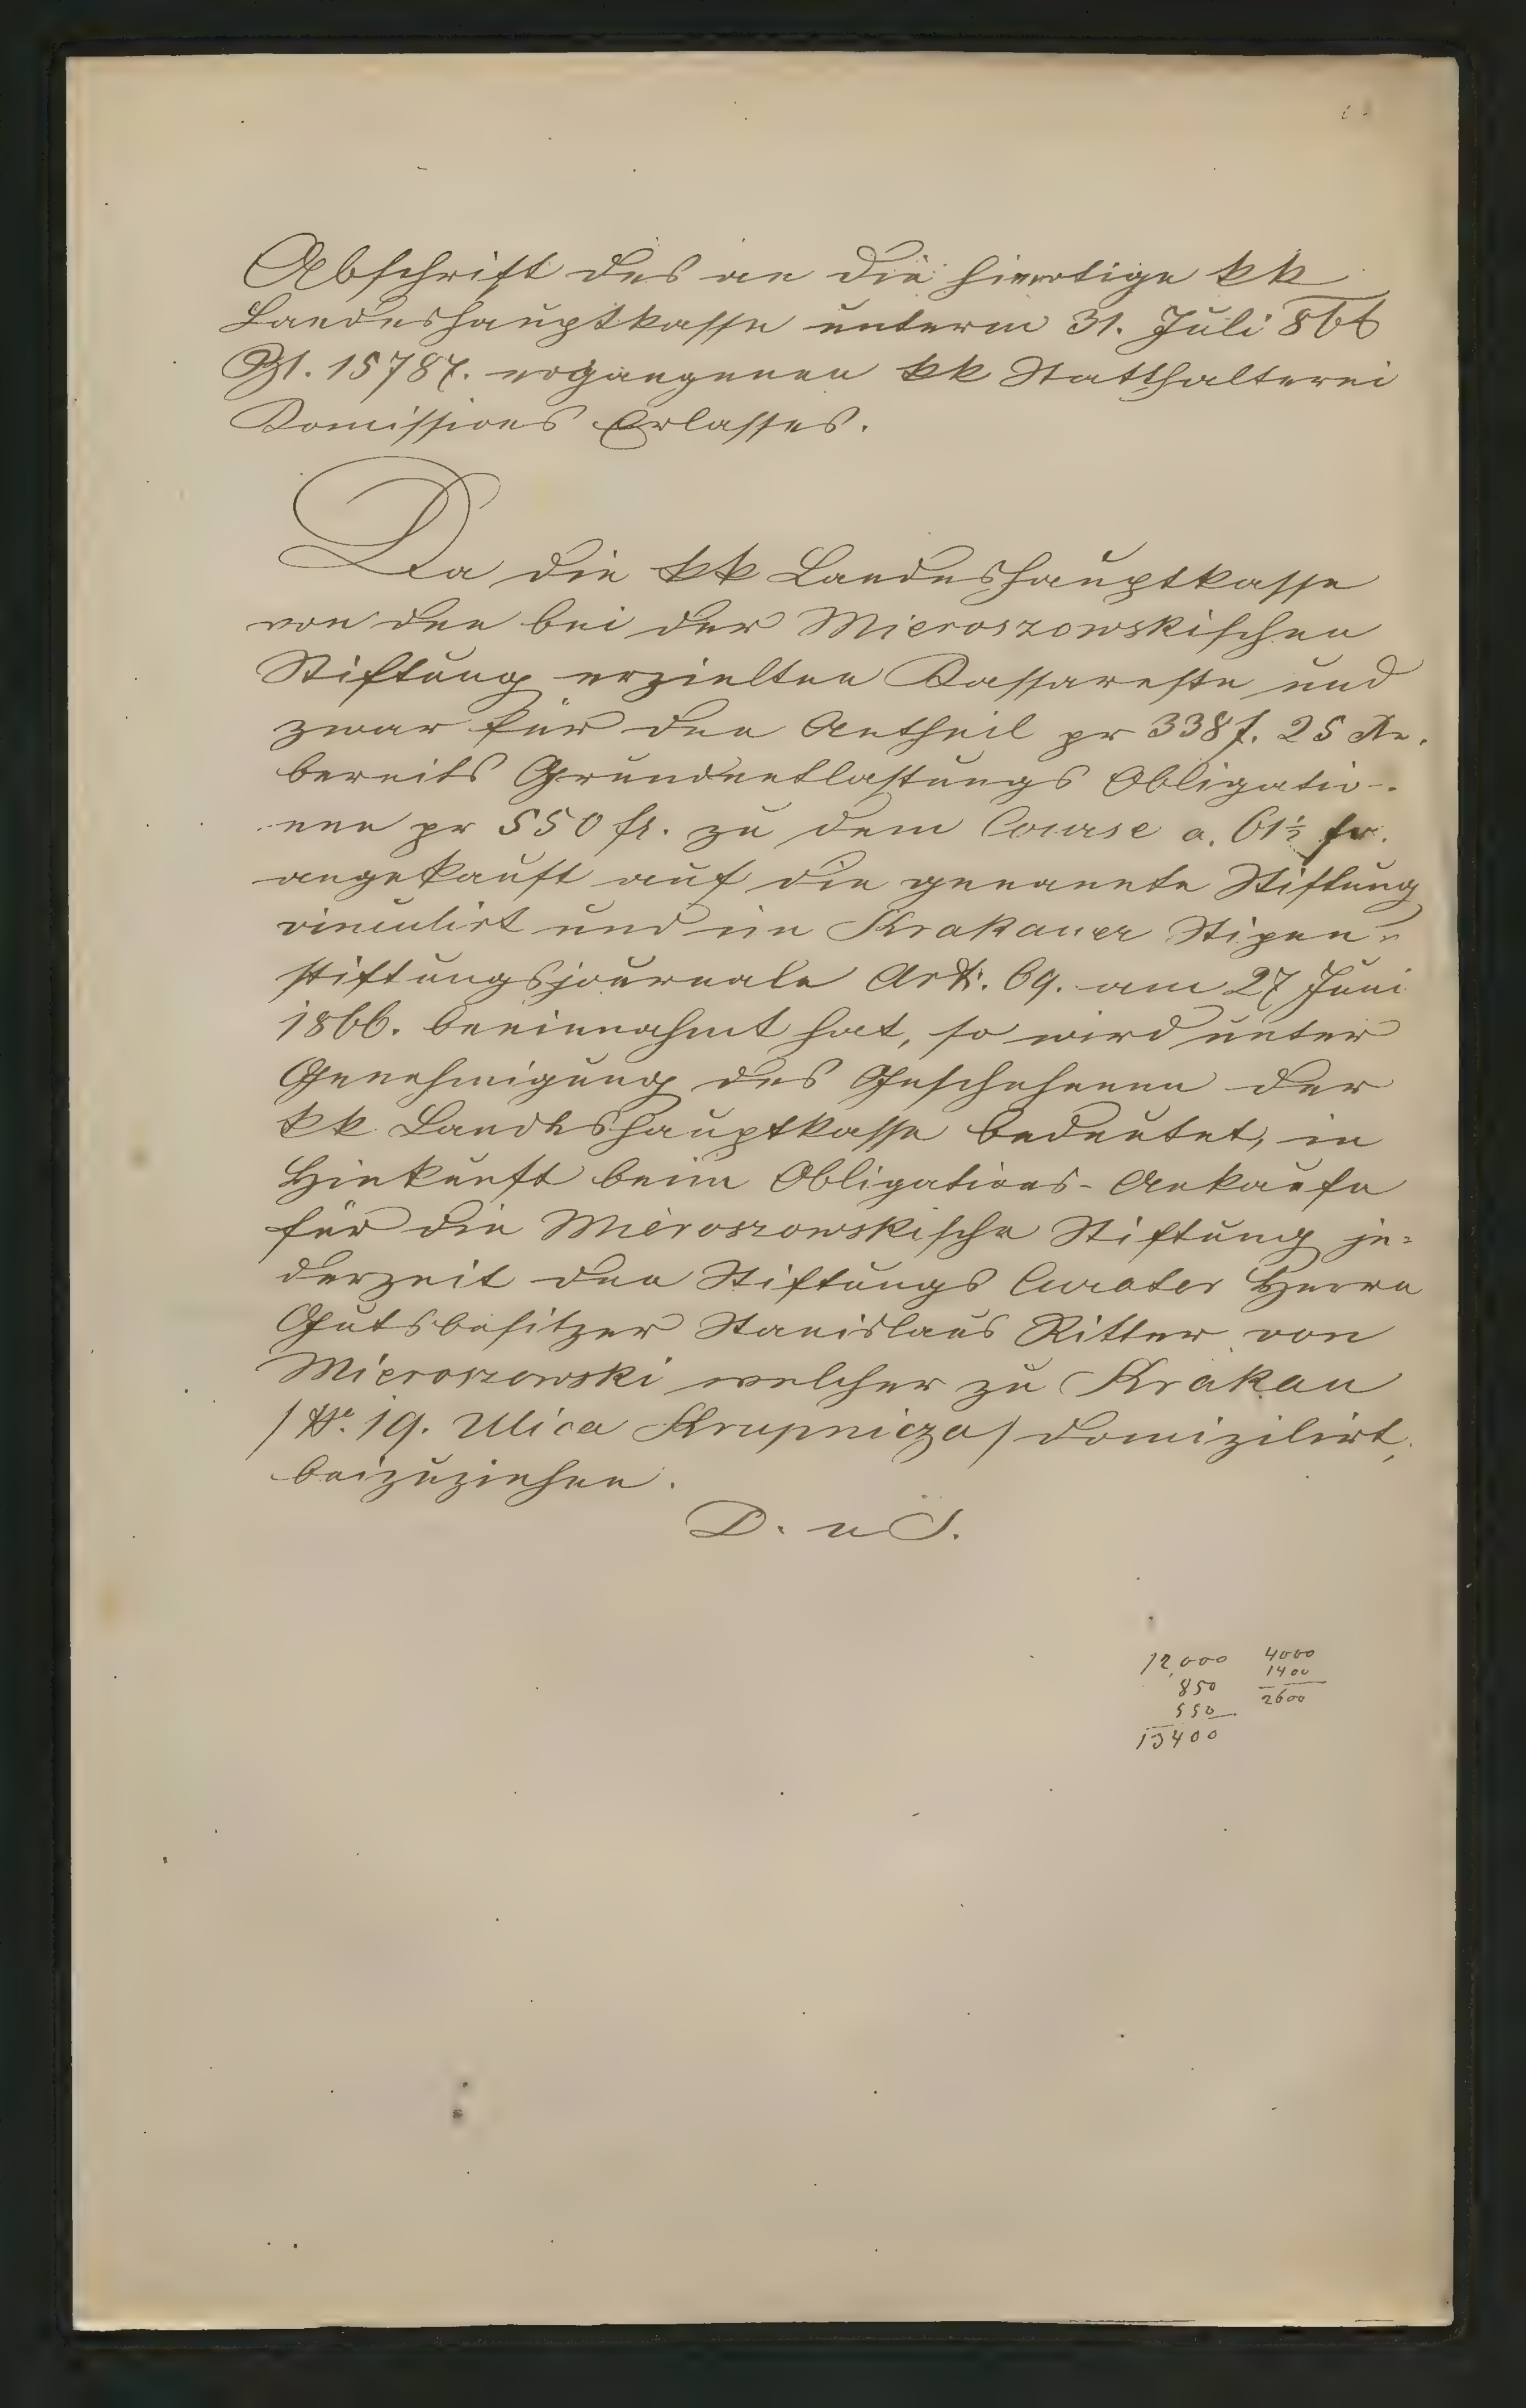 Abschrift des an die hierortige kk
Landeshauptkasse unterm 31. Juli 866
Zl. 15787. ergangenen kk Statthalterei
Komissions Erlasses.
Da die kk Landeshauptkasse
von den bei der Mieroszowskischen
Stiftung erzielten Kassareste und
zwar für den Antheil pr 338 f. 25 Kr.
bereits Grundentlastungs Obligatio-
nen pr 550 fl. zu dem Course a. 61½ fr.
angekauft auf die genannte Stiftung
vinculirt und im Krakauer Stipen=
stiftungsjournale Art. 69. am 27 Juni
1866. beeinnahmt hat, so wird unter
Genehmigung des Geschehenen der
kk Landeshauptkasse bedeutet, in
Hinkunft beim Obligations-Ankaufe
für die Mieroszowskische Stiftung je=
derzeit den Stiftungs Curator Herrn
Gutsbesitzer Stanislaus Ritter von
Mieroszowski welcher zu Krakau
/ N. 19. Ulica Krupnicza / domizilirt,
beizuziehen.
D. u S.
12,000 4000
850 1400
550 2600
13400